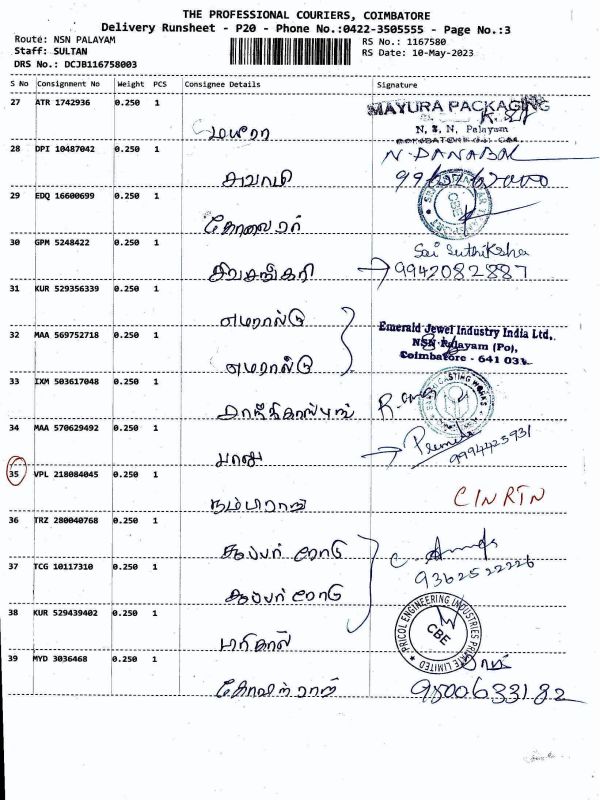 THE PROFESSIONAL COURIERS, COIMBATORE
Delivery Runsheet - P20 - Phone No.:0422-3505555 - Page No.:3
Route: NSN PALAYAM
RS No.: 1167580
Staff: SULTAN
RS Date: 10-May-2023
DRS No.: DCJB116758003
S No Consignment No Weight PCS Consignee Details Signature
27 ATR 1742936 0.250 1
MAYURA PACKAGING
N. S. N. Palayam
மயூரா
28 DPI 10487042 0.250 1
N. DANABAL
சுவாமி
29 EDQ 16600699 0.250 1
CBE
30 GPM 5248422 0.250 1
Sai Suthiksha
சிவசங்கரி
9942082887
31 KUR 529356339 0.250 1
எமரால்டு
32 MAA 569752718 0.250 1
Emerald Jewel Industry India Ltd,
NSN Palayam (Po),
Coimbatore - 641 031
எமரால்டு
33 IXM 503617048 0.250 1
34 MAA 570629492 0.250 1
Premela
9994423931
பானு
35 VPL 218084045 0.250 1
CINRTN
நம்பிராஜ்
36 TRZ 280040768 0.250 1
9362522226
37 TCG 10117310 0.250 1
38 KUR 529439402 0.250 1
PRICOL ENGINEERING INDUSTRIES PRIVATE LIMITED
CBE
பிரிகால்
39 MYD 3036468 0.250 1
கோவிந்ராஜ்
9500633182